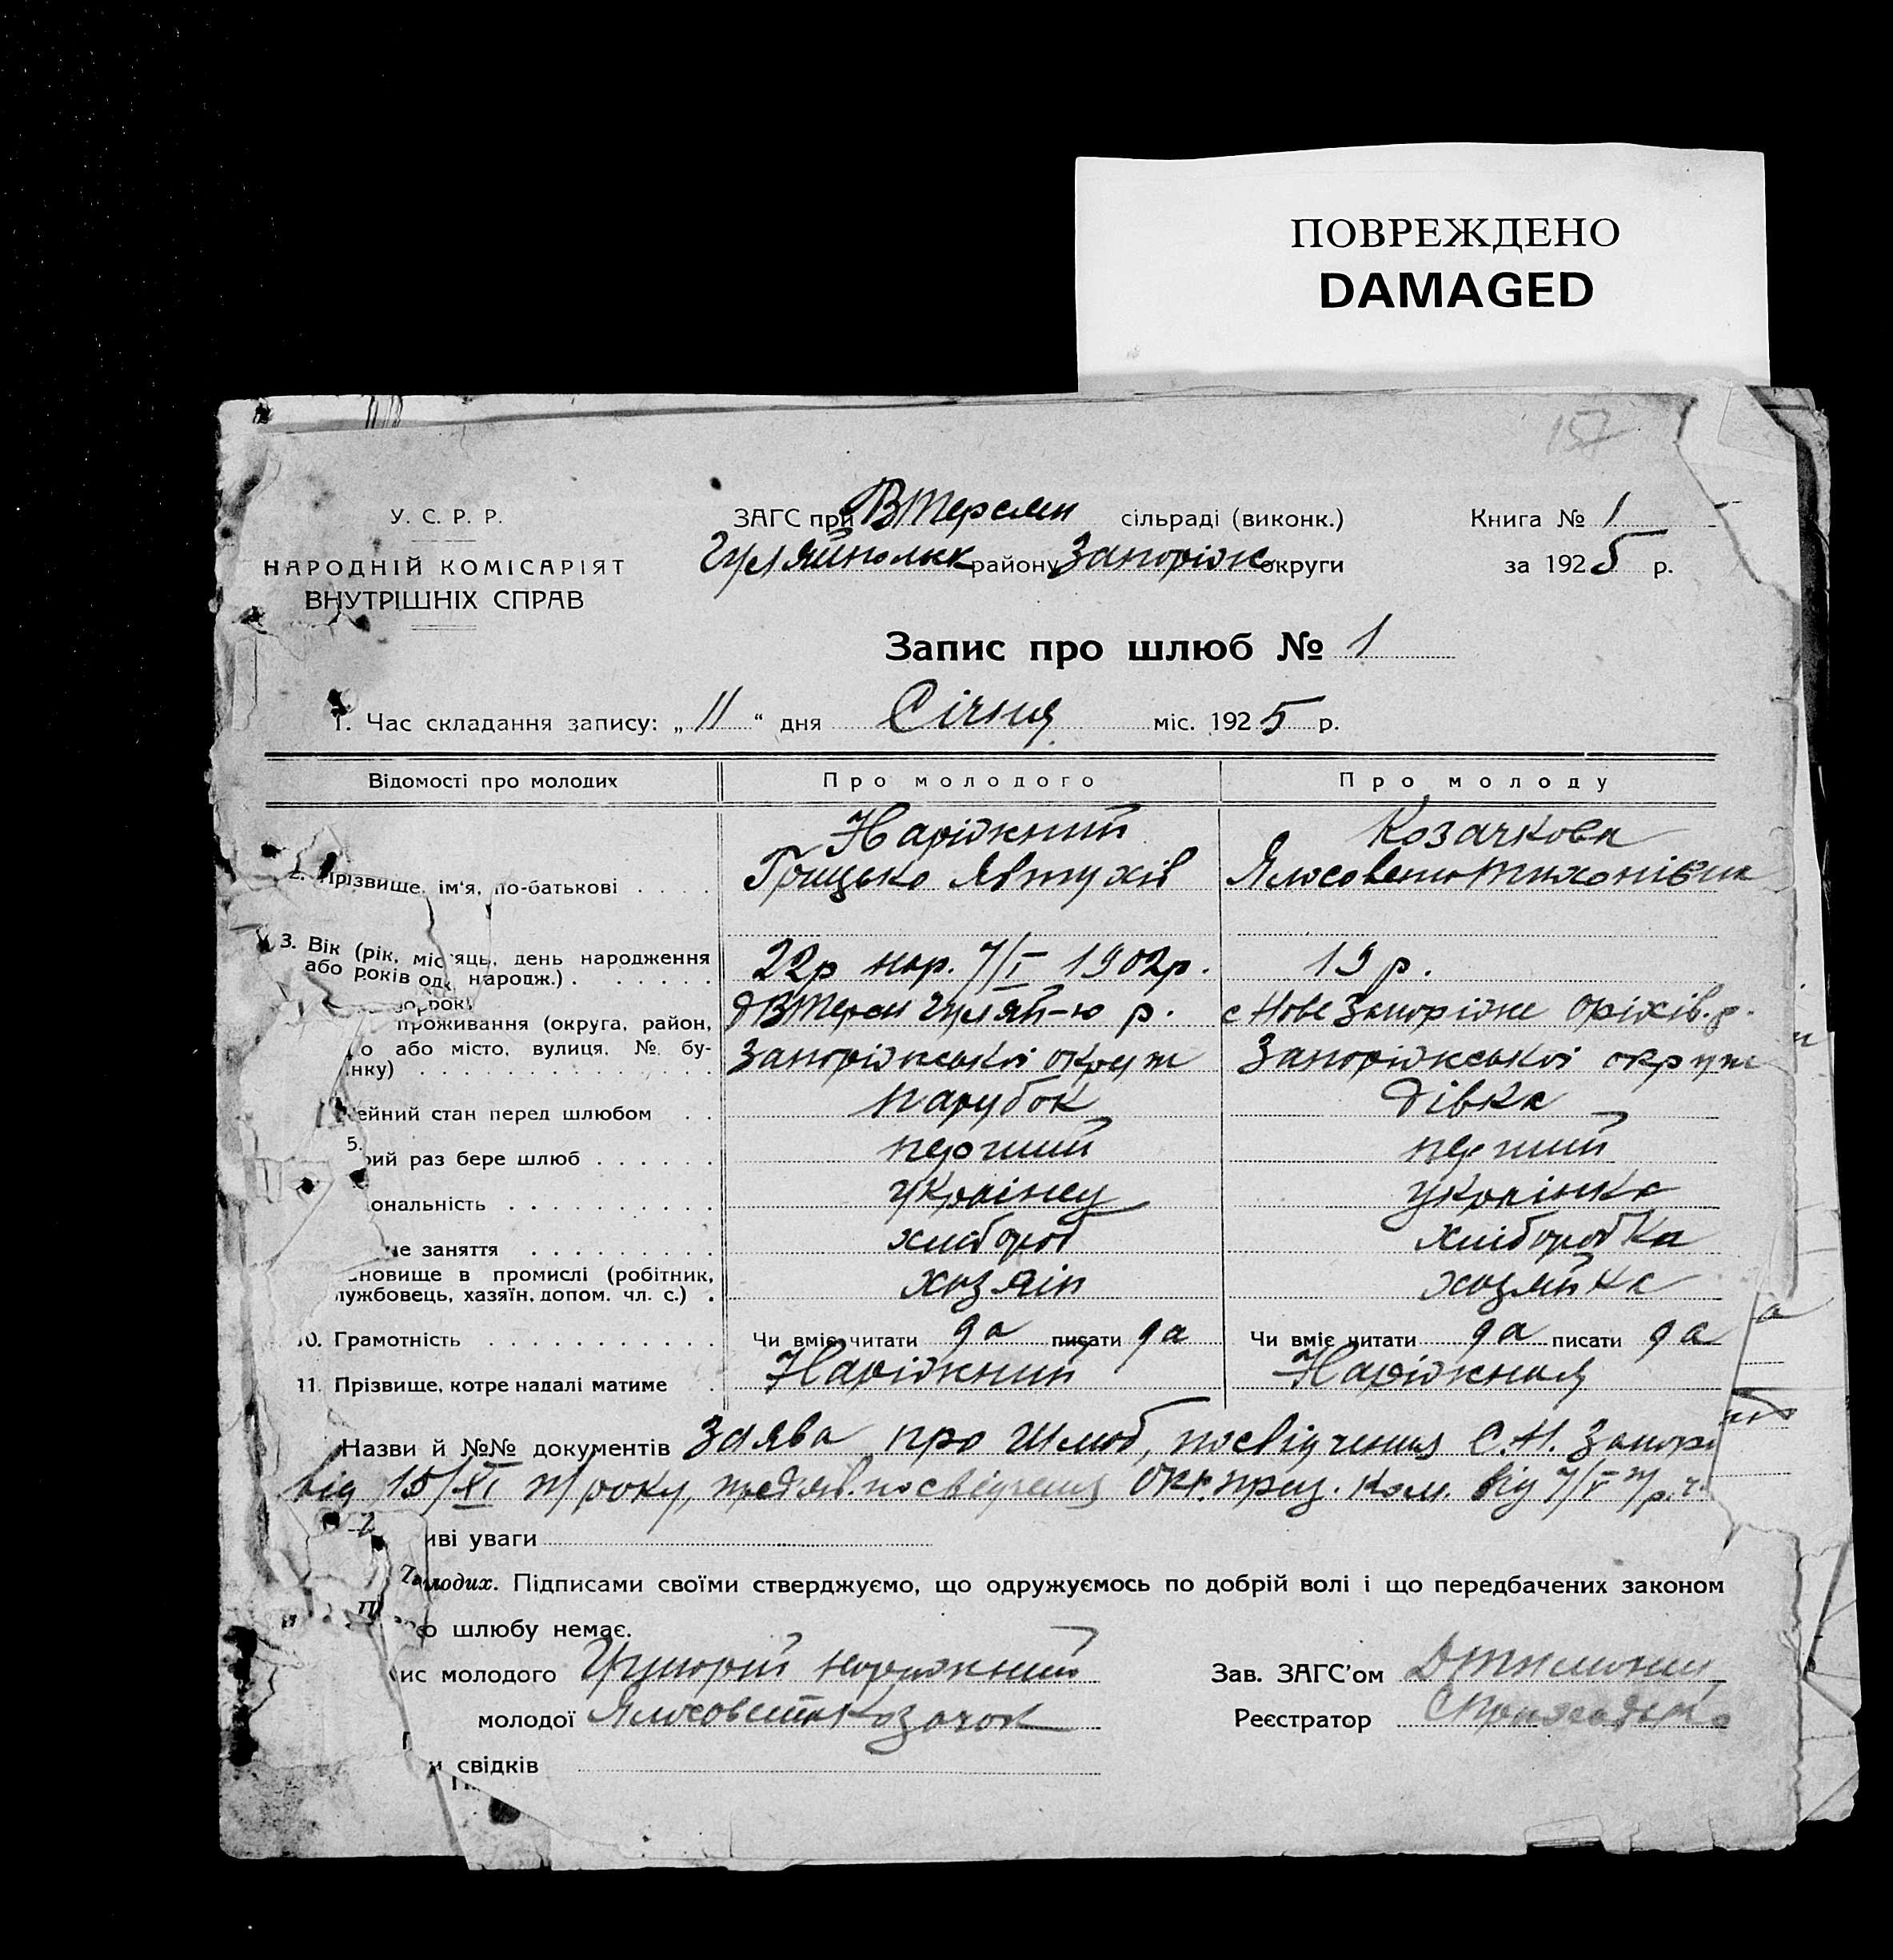 ПОВРЕЖДЕНО
DAMAGED
157
У. С. Р. Р.
НАРОДНІЙ КОМІСАРІЯТ
ВНУТРІШНІХ СПРАВ
ЗАГС при ВТерсян сільраді (виконк.)
Гуляйпольськ району Запоріж округи
Книга № 1
за 1925 р.
Запис про шлюб № 1
1. Час складання запису: „11“ дня Січня міс. 1925 р.
Відомості про молодих Про молодого Про молоду
Наріжний Козачкова
2. Прізвище, ім'я, по-батькові . . . . Грицько Явтухів Ялосовета Тихонівна
3. Вік (рік, місяць, день народження 22р нар. 7/I 1902р. 19 р.
або років од народж.) . . . . . .
проживання (округа, район, ВТерсян Гуляй-ю р. с Нове Запоріже Оріхів. р.
о або місто, вулиця, №, бу-
инку) . . . . . . . . . . . . . Запоріжської округи Запоріжської округи
ейний стан перед шлюбом . . парубок дівка
5.
рий раз бере шлюб . . . . . . перший перший
ональність . . . . . . . . . . українец українка
не заняття . . . . . . . . . хлібороб хліборобка
ановище в промислі (робітник,
лужбовець, хазяїн, допом. чл. с.) . хозяін хозяйка
10. Грамотність . . . . . . . . . . . Чи вміє читати да писати да Чи вміє читати да писати да
11. Прізвище, котре надалі матиме . Наріжний Наріжная
Назви й №№ документів Заява про шлюб, посвідчення С.Н. Запорі
від 15/XI п/року, посвідчення Окр. приз. ком. від 7/V
иві уваги
молодих. Підписами своїми стверджуємо, що одружуємось по добрій волі і що передбачених законом
о шлюбу немає.
ис молодого Григорій Наріжний Зав. ЗАГС'ом
молодої Ялосовета Козачок Реєстратор
и свідків